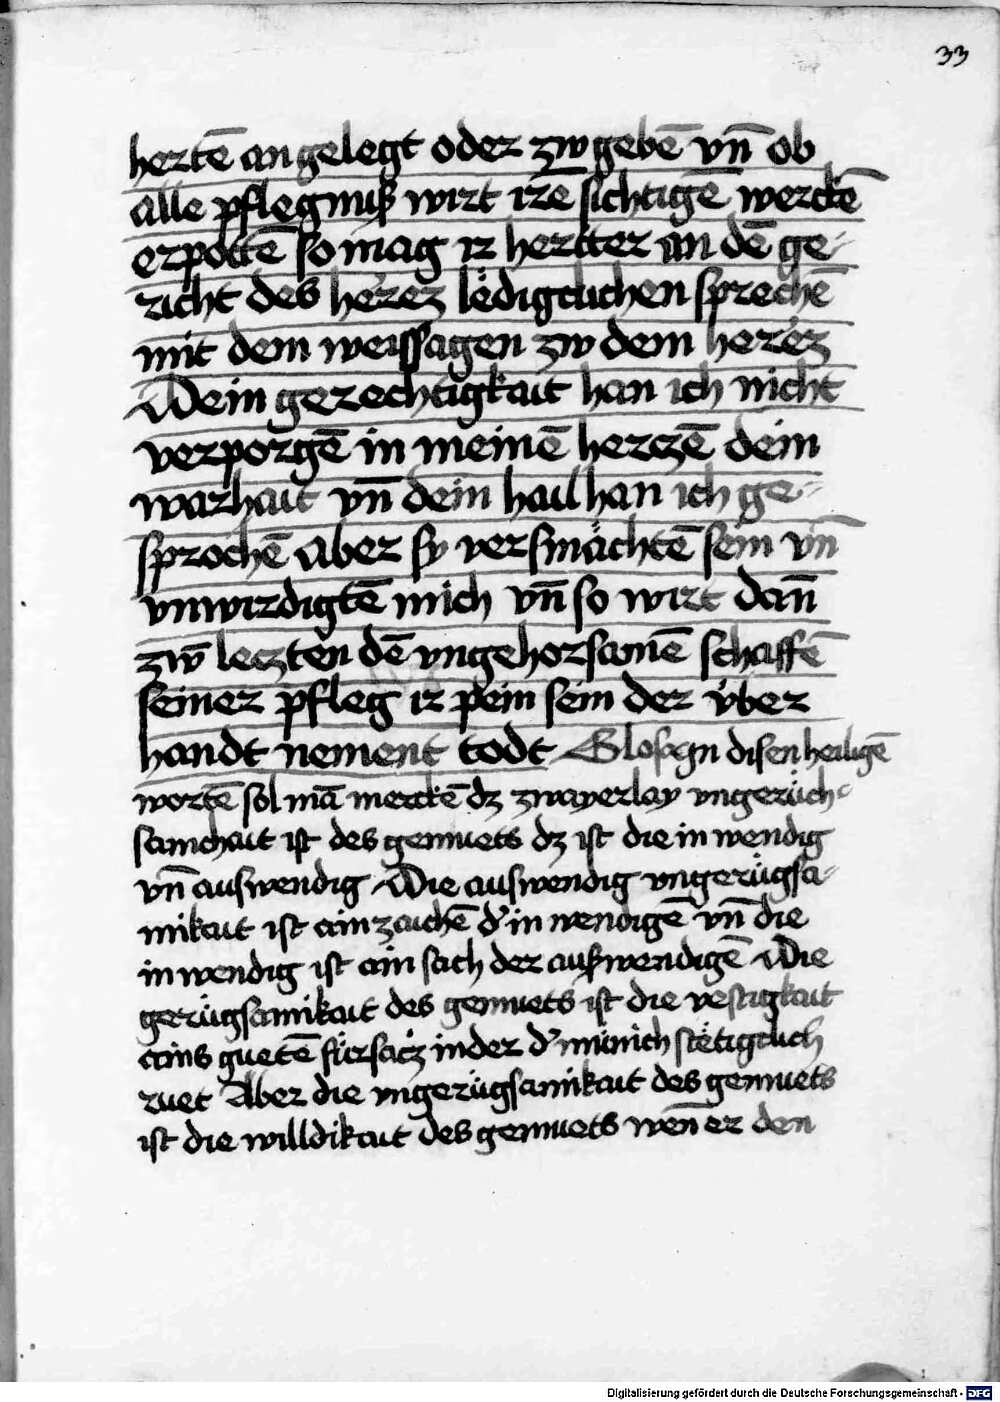 33
hertē an gelegt oder zw gebē vn̄ ob
alle pflegnuß wirt irē sichtigē werckē
erpottē so mag ir herttер an dē ge-
richt des herez ledigclichen sprechē
mit dem weissagen zw dem herez
Dein gerechtigkait han ich nicht
verporgē in meinē herczē dein
warhait vn̄ dein hail han ich ge-
sprochē Aber sy versmächtē sein vn̄
vnwirdigtē mich vn̄ so wirt dan̄
zw̄ leczten dē vngehorsamē schaffē
seiner pfleg ir pein sein der v̈ber
handt nement todt Glosa In disen heiligē
wortē sol mā merckē dz zwayerlay vngerüch-
samchait ist des gemuets dz ist die in wendig
vn̄ auswendig Die auswendig vngerügsa-
mikait ist ain zaichē d' in wendigē vn̄ die
in wendig ist ain sach der außwendigē Die
gerügsamikait des gemuets ist die vestigkait
ains guetē fürsacz in der d' münich stëtigclich
ruet Aber die vngerügsamikait des gemuets
ist die willdikait des gemuets wen̄ er den
Digitalisierung gefördert durch die Deutsche Forschungsgemeinschaft - DFG